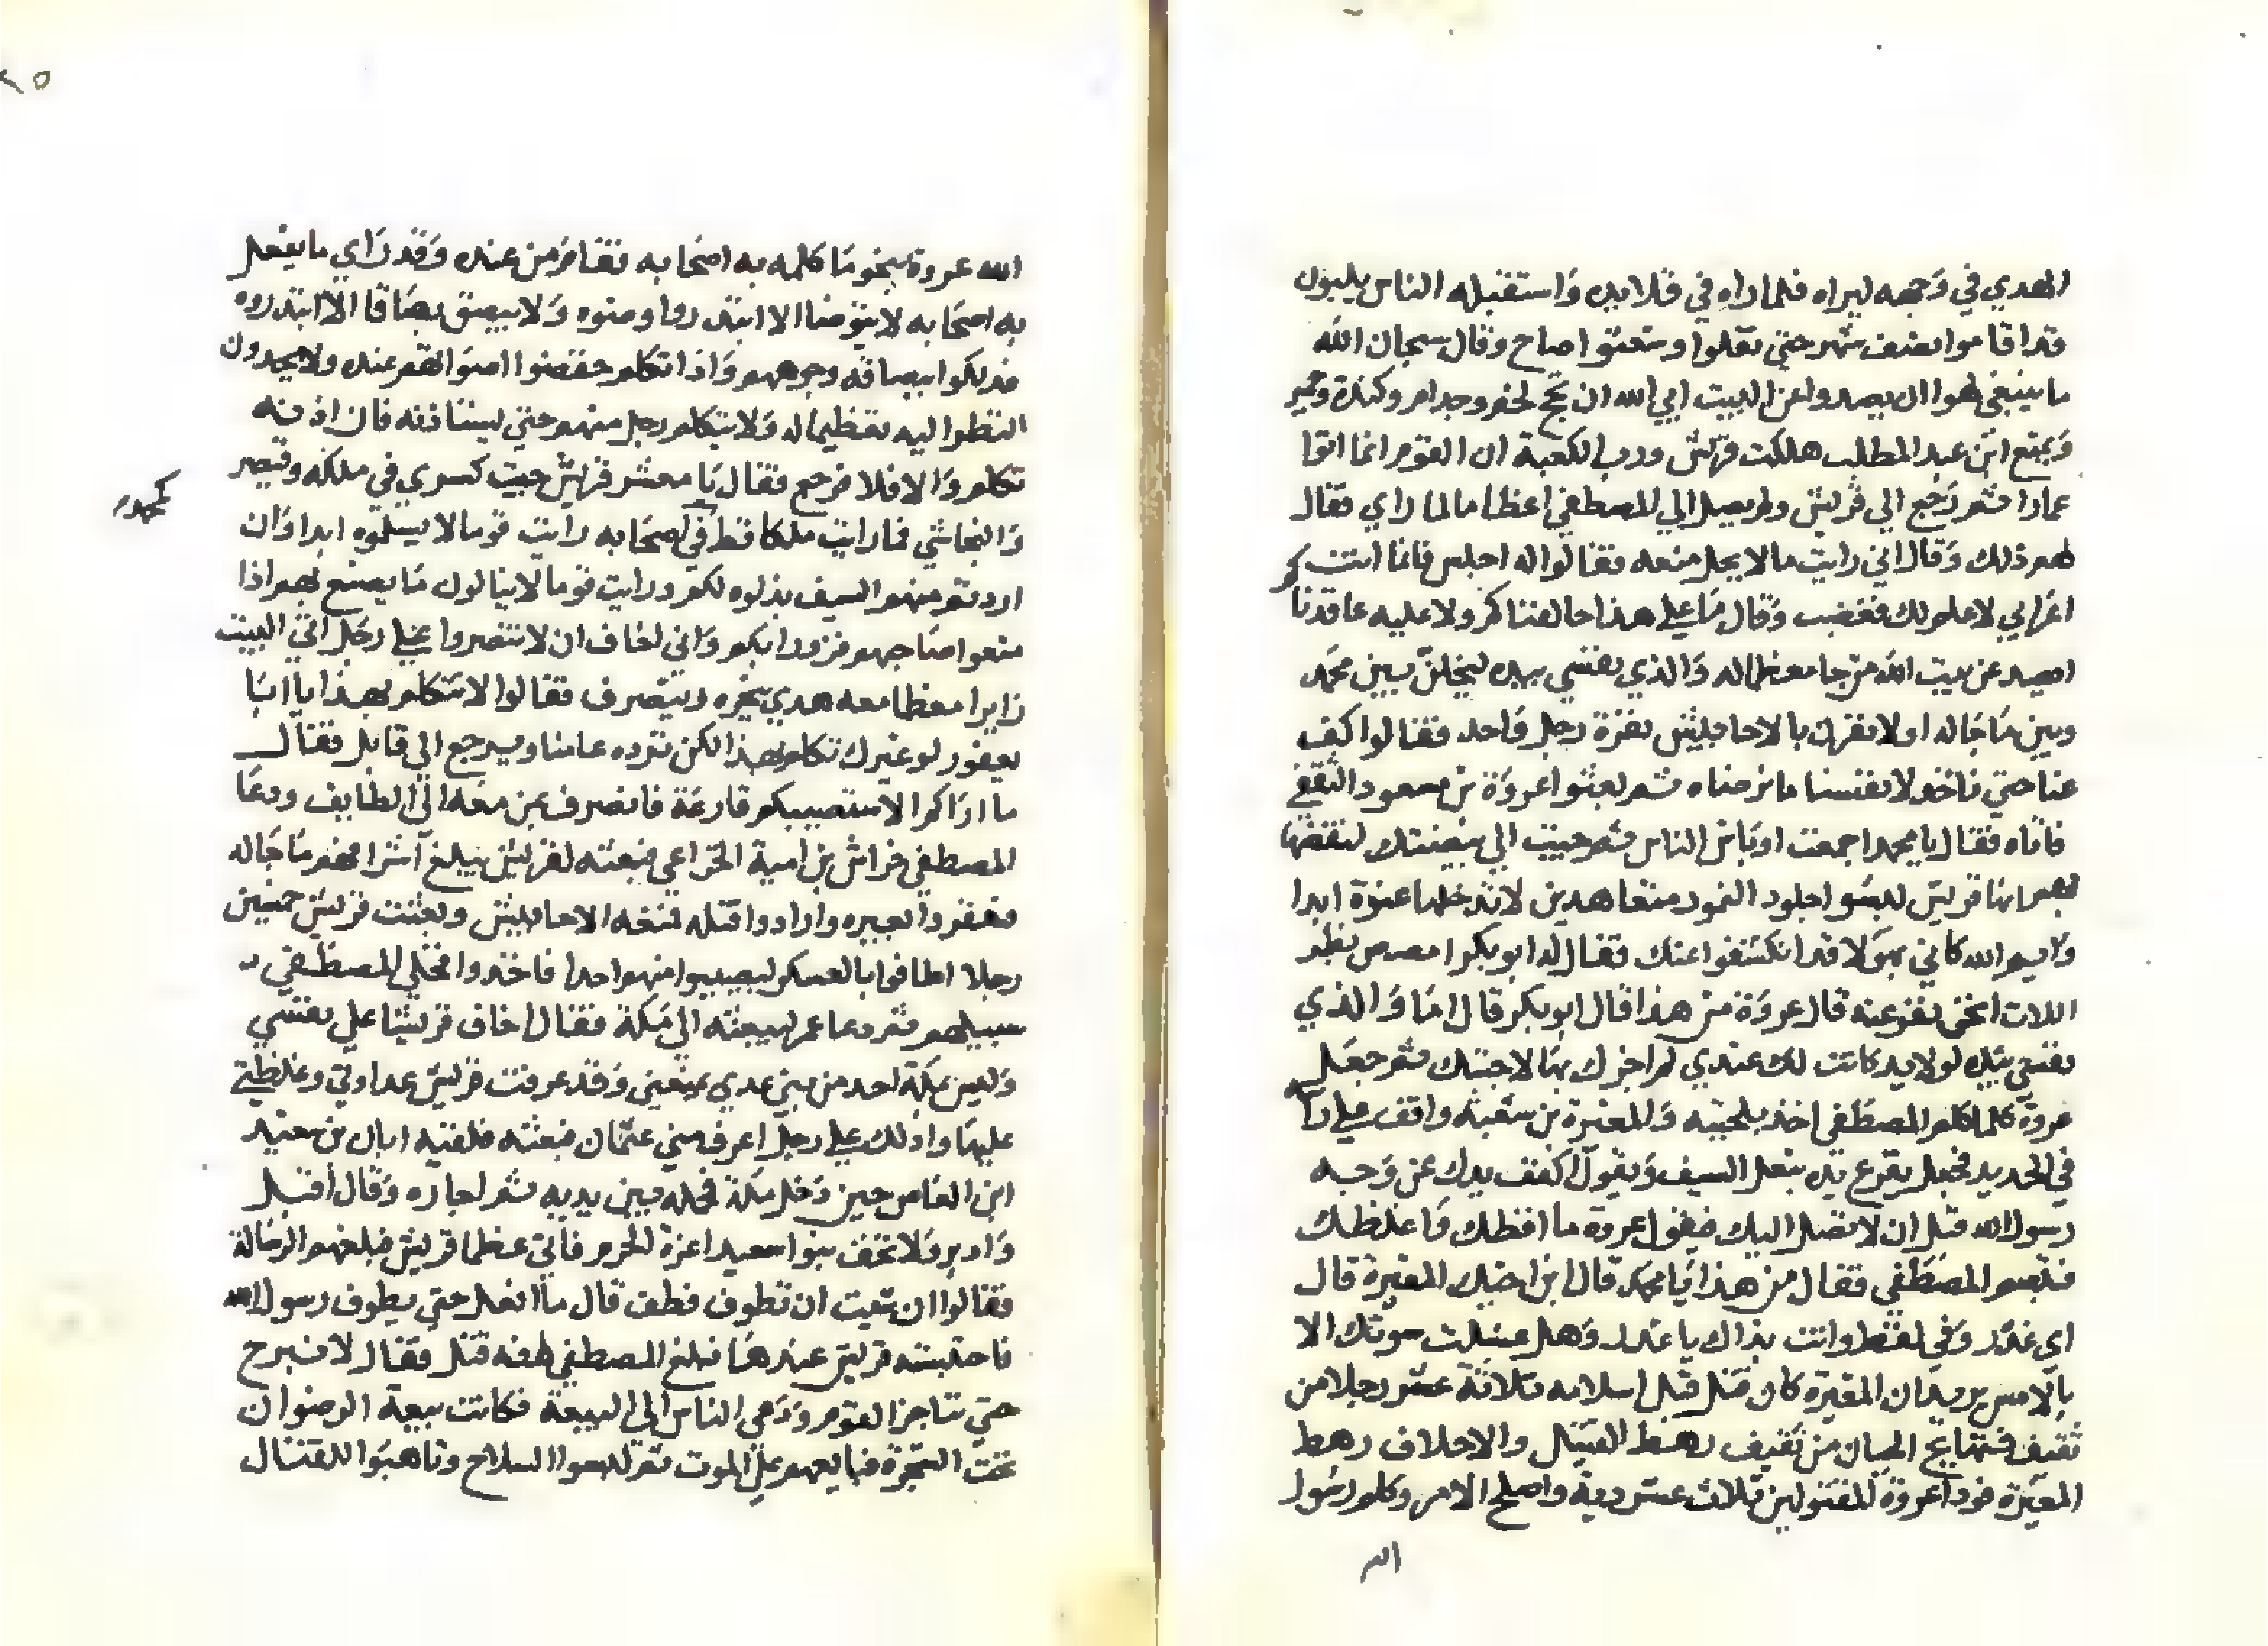 الهدي في وجهه ليراه فلما راه في قلايده واستقبله الناس يلبون
قد اقاموا نصف شهر حتى تفلوا وشعثوا صاح وقال سبحان الله
ما ينبغي لهوا ان يصدوا عن البيت ابي الله ان تحج لخم وجدام وكندة وحمير
ويمنع ابن عبد المطلب هلكت قريش ورب الكعبة ان القوم انما اتوا
عمارا ثم رجع الي قريش ولم يصل الي المصطفي اعظاما لما راي فقال
لهم ذلك وقال اني رايت ما لا يحل منعه فقالوا له اجلس فانما انت
اعرابي لا علم لك فغضب وقال ما علي هذا حالفناكم ولا عليه عاقدناكم
ايصد عن بيت الله من جا معظما له والذي نفسي بيده ليخلن بين محمد
وبين ما جا له او لا نفرن بالاحابيش نفرة رجل واحد فقالوا كف
عنا حتي ناخذ لانفسنا ما نرضاه ثم بعثوا عروة بن مسعود الثقفي
فاتاه فقال يا محمد اجمعت اوباش الناس ثم جيت الي بيضتك لتفضها
بهم انها قريش لبسوا جلود النمور متعاهدين لا تدخلها عنوة ابدا
وايم الله كاني بهولا قد انكشفوا عنك فقال له ابو بكر امصص بظر
اللات انحن نفر عنه قال عروة من هذا قال ابو بكر قال اما والذي
نفسي بيده لولا يد كانت لك عندي لم اجزك بها لاجبتك ثم جعل
عروة كلما كلم المصطفي اخذ بلحيته والمغيرة بن شعبة واقف علي راسه
في الحديد فجعل يقرع يده بنعل السيف ويقول اكفف يدك عن وجه
رسول الله قبل ان لا تصل اليك فيقول عروة ما افظك واغلظك
فتبسم المصطفي فقال من هذا يا محمد قال ابن اخيك المغيرة قال
اي غدر وفي لفظ وانت بذاك يا غدر وهل غسلت سوتك الا
بالامس يريد ان المغيرة كان قتل قبل اسلامه ثلاثة عشر رجلا من
ثقيف فتهايج الحيان من ثقيف رهط القتيل والاحلاف رهط
المغيرة فودا عروة للمقتولين ثلاث عشر دية واصلح الامر وكلم رسول
الله
الله عروة بنحو ما كلمه به اصحابه فقام من عنده وقد راي ما يفعل
به اصحابه لا يتوضا الا ابتدروا وضوه ولا يبصق بصاقا الا ابتدروه
فدلكوا ببصاقه وجوههم واذا تكلم خفضوا اصواتهم عنده ولا يحدون
النظر اليه تعظيما له ولا يتكلم رجل منهم حتي يستاذنه فان اذن له
تكلم والا فلا فرجع فقال يا معشر قريش جيت كسري في ملكه وقيصر
والنجاشي فما رايت ملكا قط في اصحابه رايت قوما لا يسلموه ابدا وان
كمحمد
اردتم منهم السيف بذلوه لكم ورايت قوما لا يبالون ما يصنع بهم اذا
منعوا صاحبهم فزودا بكم واني لخاف ان لا تنصروا علي رجل اتي البيت
زايرا معظما معه هدي ينحره وينصرف فقالوا لا تتكلم بهذا يا ابا
يعفور لو غيرك تكلم بهذا لكن نرده عامنا ويرجع الي قابل فقال
ما اراكم الا ستصيبكم قارعة فانصرف بمن معه الي الطايف ودعا
المصطفي خراش بن امية الخزاعي فبعثه لقريش يبلغ اشرافهم ما جا له
فعقروا بعيره وارادوا قتله فمنعه الاحابيش وبعثت قريش خمسين
رجلا اطافوا بالعسكر ليصيبوا منهم احدا فاخذوا فخلي المصطفي
سبيلهم ثم دعا عمر ليبعثه الي مكة فقال اخاف قريشا علي نفسي
وليس بمكة احد من بني عدي يمنعني وقد عرفت قريش عداوتي وغلظتي
عليها وادلك علي رجل اعرف مني عثمان فبعثه فلقيه ابان بن سعيد
ابن العاص حين دخل مكة فحمله بين يديه ثم اجاره وقال اقبل
وادبر ولا تخف بنوا سعيد اعزة الحرم فاتي عظما قريش فبلغهم الرسالة
فقالوا ان شيت ان تطوف فطف قال ما افعل حتي يطوف رسول الله
فاحتبسته قريش عندها فبلغ المصطفي انه قتل فقال لا نبرح
حتي نناجز القوم ودعي الناس الي البيعة فكانت بيعة الرضوان
تحت الشجرة فبايعهم علي الموت ثم لبسوا السلاح وتاهبوا للقتال